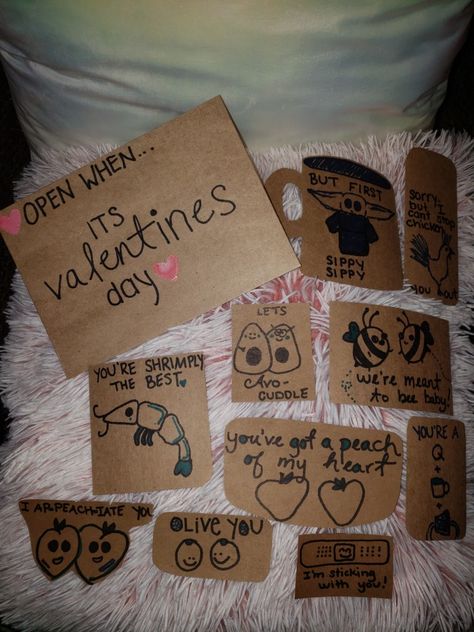 OPEN WHEN...
ITS
valentines
day
BUT FIRST
SIPPY
SIPPY
Sorry,
but I
cant stop
chicken
YOU out
LETS
AVO-
CUDDLE
we're meant
to bee baby!
YOU'RE SHRIMPLY
THE BEST
you've got a peach
of my heart
YOU'RE A
Q
+
+
I AP-PEACH-IATE YOU
OLIVE YOU
I'm sticking
with you!